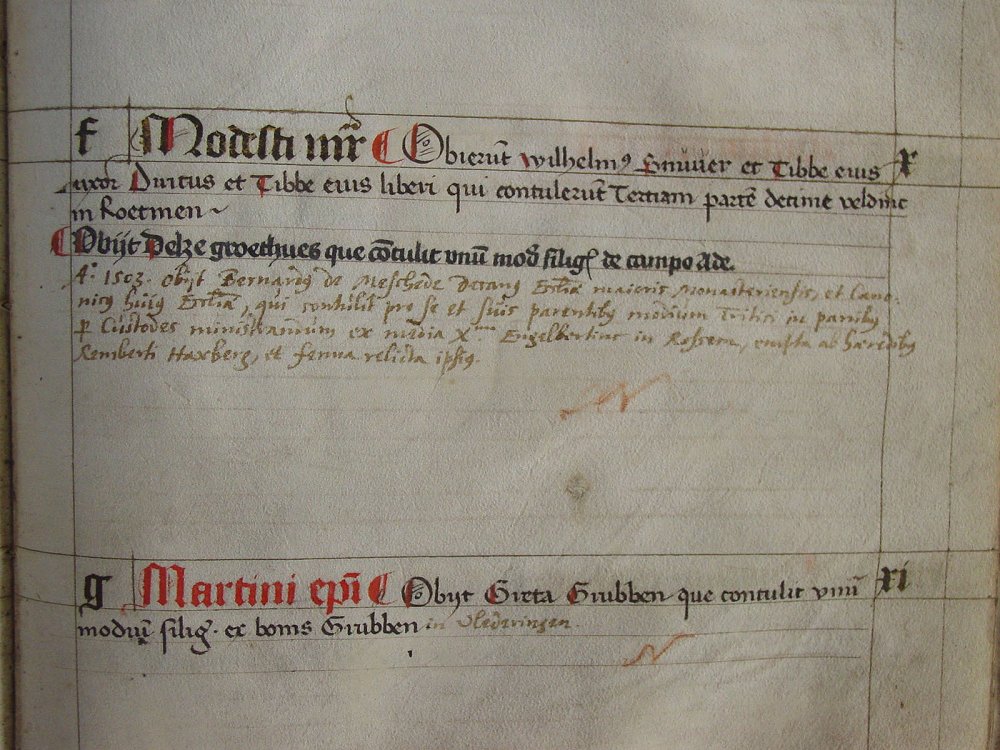 f Modesti mr̄ Obierūt Wilhelmꝰ Snuver et Tibbe eius x
uxor Duitus et Tibbe eius liberi qui contulerūt Terciam partē decime veldinc
in Roetmen
Obijt Delze groethues que cōtulit vnū mod siligꝭ de campo Ade.
A.° 1503. obijt Bernardꝰ de Meschede Decanꝰ Eccliæ maioris Monasteriensis, et Cano-
nicꝰ huiꝰ Eccliæ, qui contulit pro se et suis parentibꝰ modium Tritici in panibꝰ
ꝑ Custodes ministrandum ex media X.ma Engelbertinc in Rossem, empta ab hæredibꝰ
Remberti Haxberg, et fenna relicta ipsiꝰ.
g Martini epi̅ Obijt Greta Grubben que contulit vnū xi
modiū silig. ex bonis Grubben in Vlederingen.